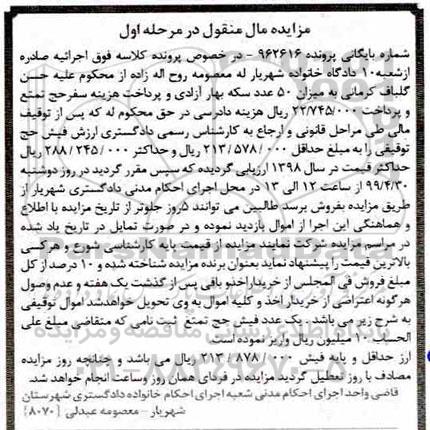 مزایده مال منقول در مرحله اول
شماره بایگانی پرونده ۹۶۲۶۱۶ - در خصوص پرونده کلاسه فوق اجرائیه صادره
ازشعبه۱۰ دادگاه خانواده شهریار له معصومه روح اله زاده از محکوم علیه حسن
گلباف کرمانی به میزان ۵۰ عدد سکه بهار آزادی و پرداخت هزینه سفرحج تمتع
و پرداخت ۲۲/۷۴۵/۰۰۰ ریال هزینه دادرسی در حق محکوم له که پس از توقیف
مالی طی مراحل قانونی و ارجاع به کارشناس رسمی دادگستری ارزش فیش حج
توقیفی را به مبلغ حداقل ۲۱۳/۵۷۸/۰۰۰ ریال و حداکثر ۲۸۸/۲۴۵/۰۰۰ ریال
حداکثر قیمت در سال ۱۳۹۸ ارزیابی گردیده که سپس مقرر گردید در روز دوشنبه
۹۹/۴/۳۰ از ساعت ۱۲ الی ۱۳ در محل اجرای احکام مدنی دادگستری شهریار از
طریق مزایده بفروش برسد طالبین می توانند ۵روز جلوتر از تاریخ مزایده با اطلاع
و هماهنگی این اجرا از اموال بازدید نموده و در صورت تمایل در تاریخ یاد شده
در مراسم مزایده شرکت نمایند مزایده از قیمت پایه کارشناسی شروع و هرکسی
بالاترین قیمت را پیشنهاد نماید بعنوان برنده مزایده شناخته شده و ۱۰ درصد از کل
مبلغ فروش فی المجلس از خریدار اخذ و باقی پس از گذشت یک هفته و عدم وصول
هرگونه اعتراضی از خریدار اخذ و کلیه اموال به وی تحویل خواهدشد اموال توقیفی
به شرح زیر می باشد. یک عدد فیش حج تمتع ثبت نامی که متقاضی مبلغ علی
الحساب ۱۰ میلیون ریال واریز نموده است
ارز حداقل و پایه فیش ۲۱۳/۸۷۸/۰۰۰ ریال می باشد و چنانچه روز مزایده
مصادف با روز تعطیل گردید مزایده در فردای همان روز وساعت انجام خواهد شد.
قاضی واحد اجرای احکام مدنی شعبه اجرای احکام خانواده دادگستری شهرستان
شهریار - معصومه عبدلی {۸۰۷۰}